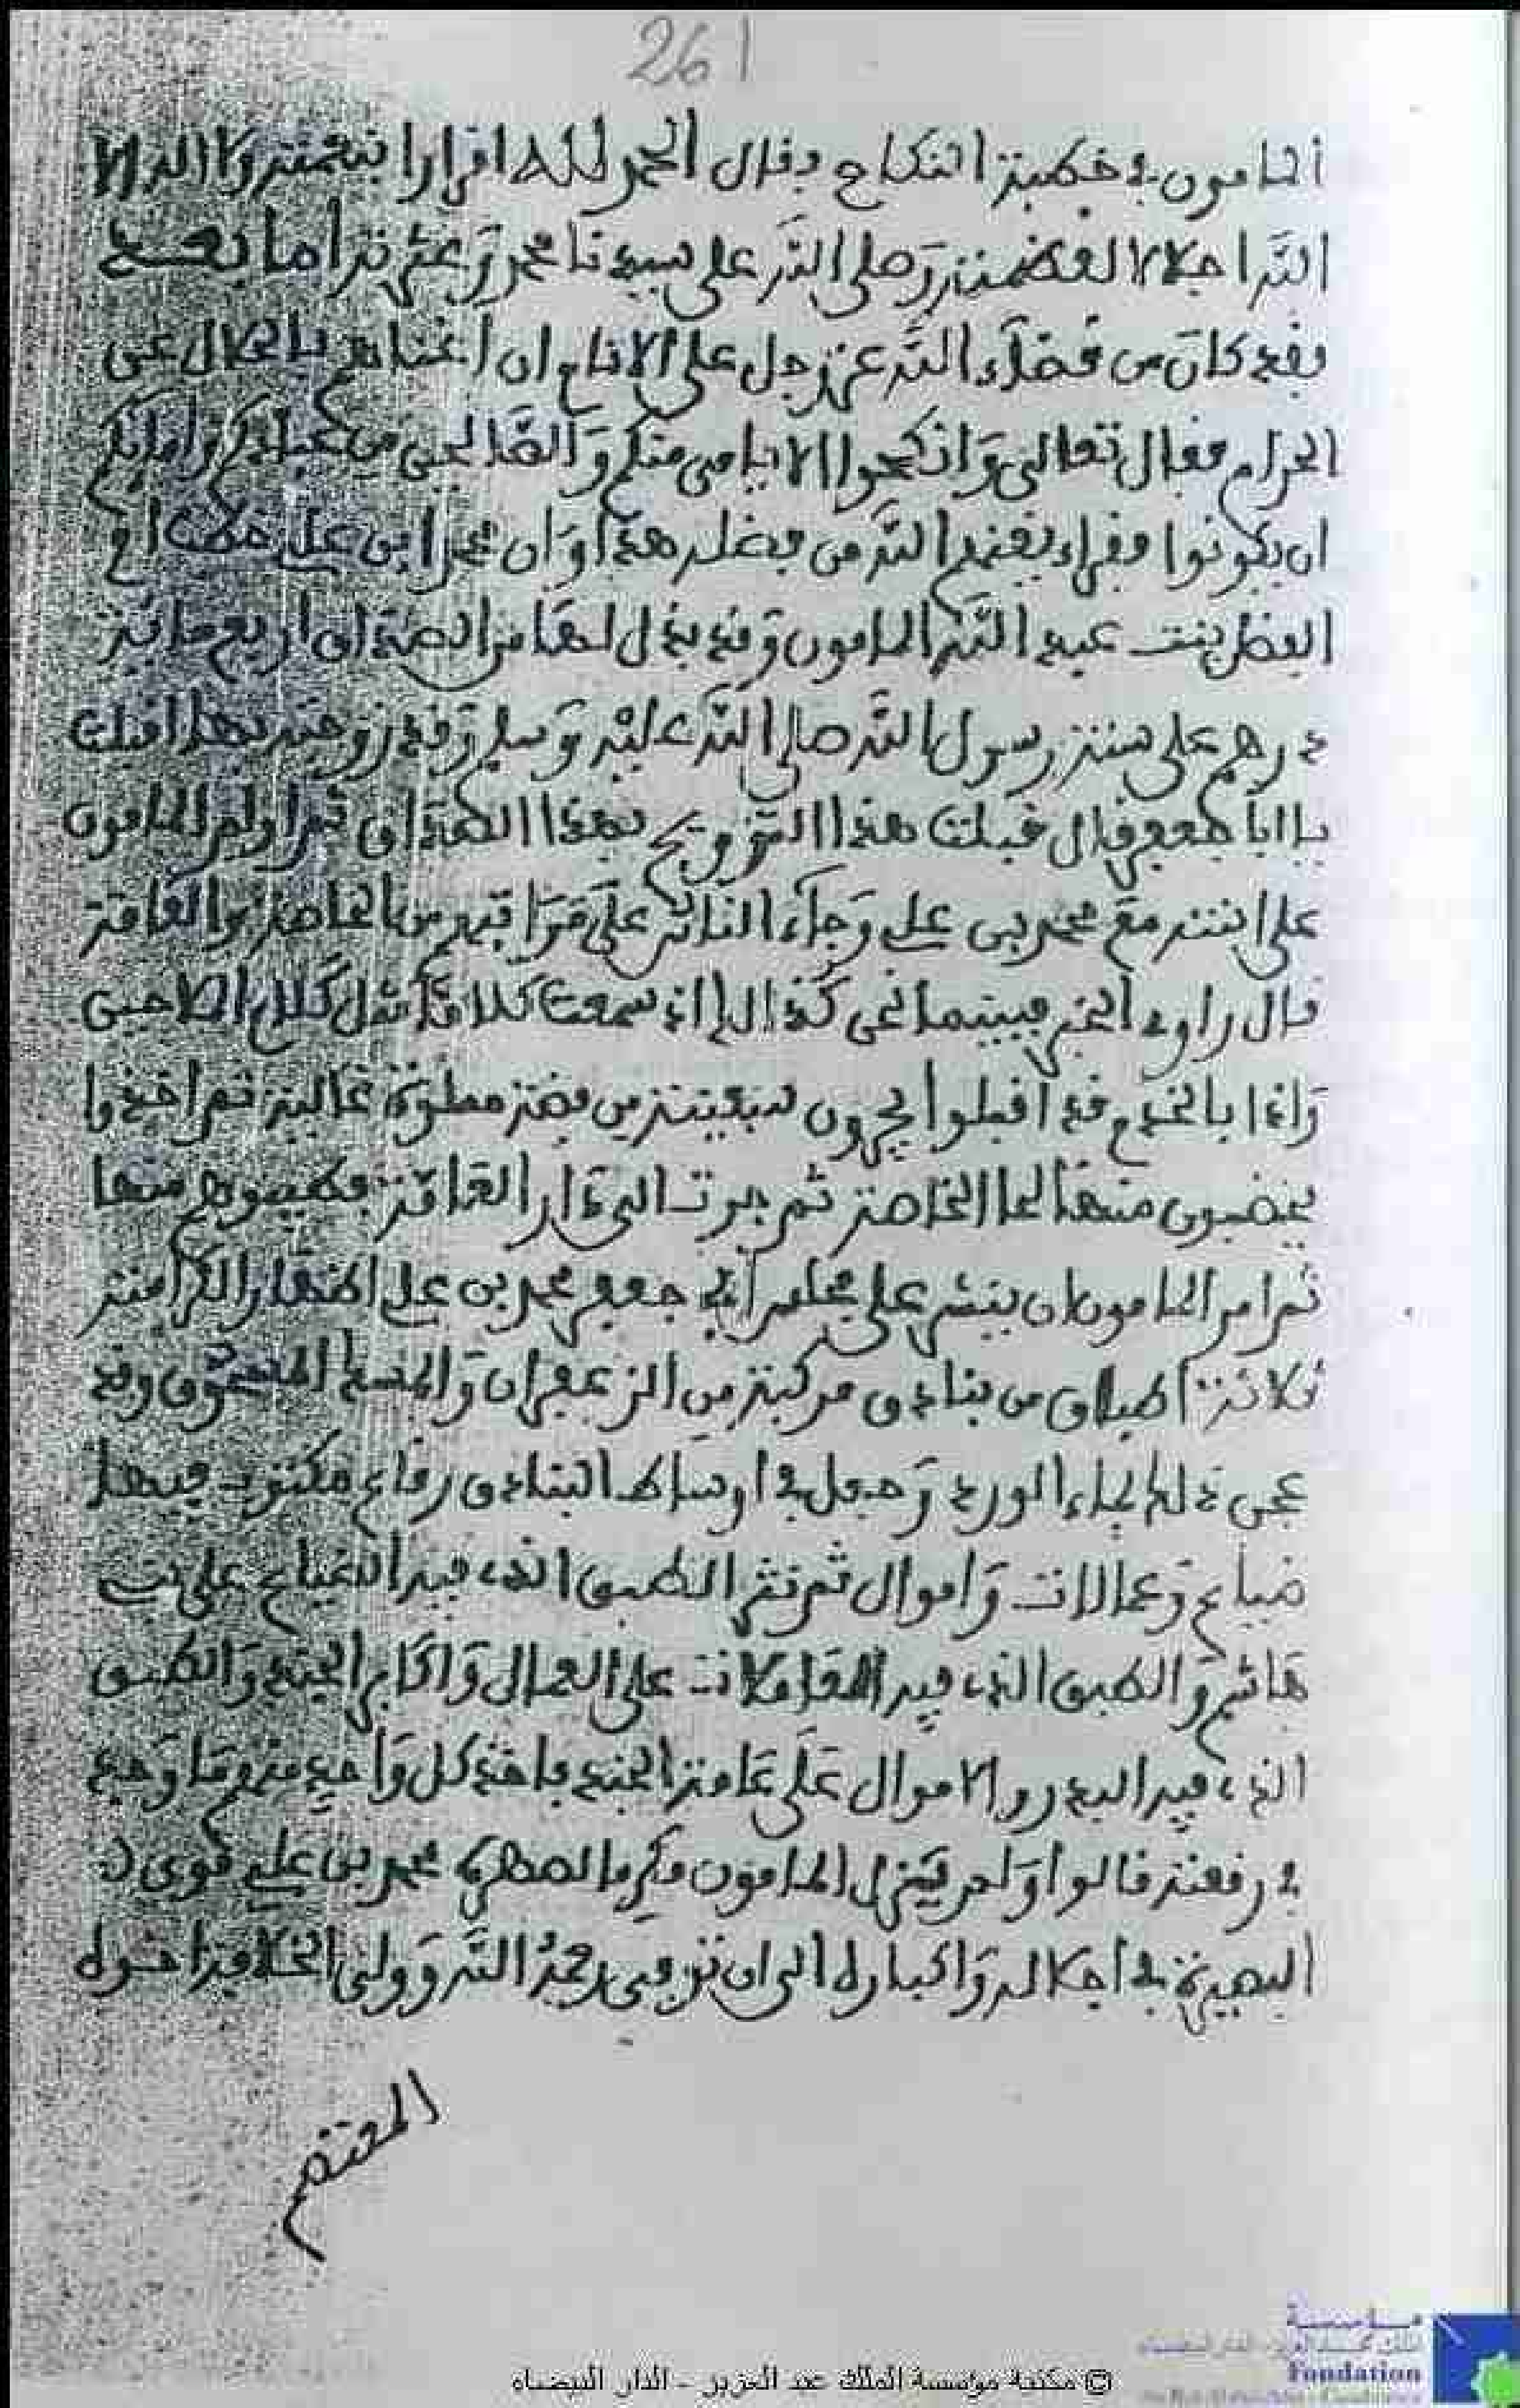 261
المامون في خطبة النكاح فقال الحمد لله اقرارا بنعمته ولا اله الا
الله اجلالا لعظمته وصلى الله على سيدنا محمد وعترته اما بعد
فقد كان من قضاء الله عز وجل على الانام ان اغناهم بالحلال عن
الحرام فقال تعالى وانكحوا الايامى منكم والصالحين من عبادكم وامائكم
ان يكونوا فقراء يغنهم الله من فضله هذا وان محمد ابن علي خطب ام
الفضل بنت عبد الله المامون وقد بذل لها من الصداق اربع مائة
درهم على سنة رسول الله صلى الله عليه وسلم وقد زوجته بها اقبلت
يا ابا جعفر قال قبلت هذا التزويج بهذا الصداق ثم اولم المامون
على ابنته مع محمد بن علي وجاء الناس على مراتبهم من الخاصة والعامة
قال راوي الخبر فبينما نحن كذالك اذ سمعت كلاما مثل كلام الملاحين
واذا بالخدم قد اقبلوا يجرون سفينة من فضة مملوة غالية ثم اخذوا
يخضبون منها لحا الخاصة ثم جرت الى دار العامة فطيبوهم منها
ثم امر المامون ان ينثر على مجلس ابي جعفر محمد بن علي
ثلاثة اطباق من بنادق مركبة من الزعفران والمسك المسحوق وقد
عجن ذلك بماء الورد وجعل في اوساط البنادق رقاع مكتوب فيها
ضياع وعمالات واموال ثم نثر الطبق الذي فيه الضياع على بني
هاشم والطبق الذي فيه العمالات على العمال واكابر الجند والطبق
الذي فيه البدر والاموال على عامة الجند فاخذ كل واحد منهم ما وجد
في رقعته قالوا ولم يزل المامون مكرما لصهره محمد بن علي قوي
البصيرة في اجلاله واكباره الى ان توفي رحمه الله وولى الخلافة اخوه
المعتصم
مؤسسة
Foundation
© مكتبة مؤسسة الملك عبد العزيز - الدار البيضاء